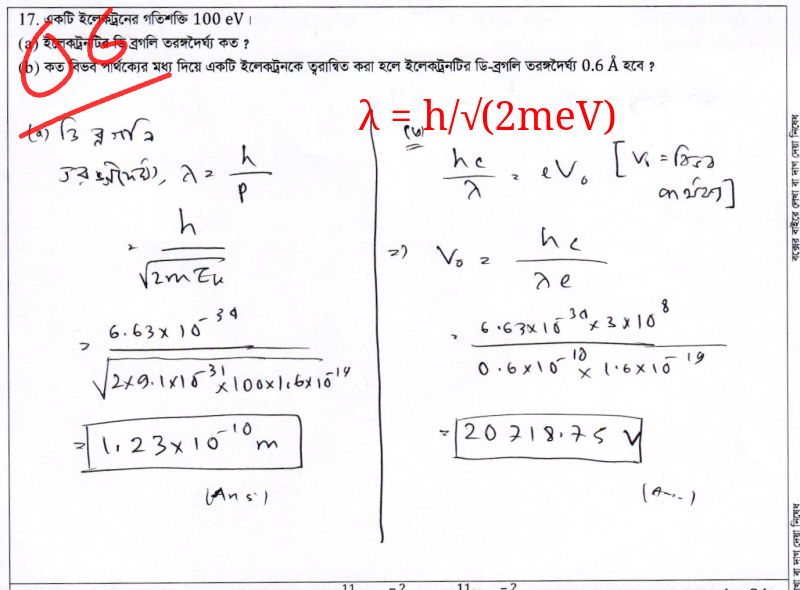 17. একটি ইলেকট্রনের গতিশক্তি 100 eV।
(a) ইলেকট্রনটির ডি ব্রগলি তরঙ্গদৈর্ঘ্য কত ?
(b) কত বিভব পার্থক্যের মধ্য দিয়ে একটি ইলেকট্রনকে ত্বরান্বিত করা হলে ইলেকট্রনটির ডি-ব্রগলি তরঙ্গদৈর্ঘ্য 0.6 Å হবে ?
λ = h/√(2meV)
(a) ডি ব্রগলি
তরঙ্গদৈর্ঘ্য, λ = h/p
= h/√2mEk
= 6.63×10^-34/√2×9.1×10^-31×100×1.6×10^-19
= 1.23×10^-10 m
(Ans:)
(b)
hc/λ = eV₀ [V₀ = বিভব
পার্থক্য]
=> V₀ = hc/λe
= 6.63×10^-34×3×10^8/0.6×10^-10×1.6×10^-19
= 20718.75 V
বক্সের বাইরে লেখা বা দাগ দেয়া নিষেধ